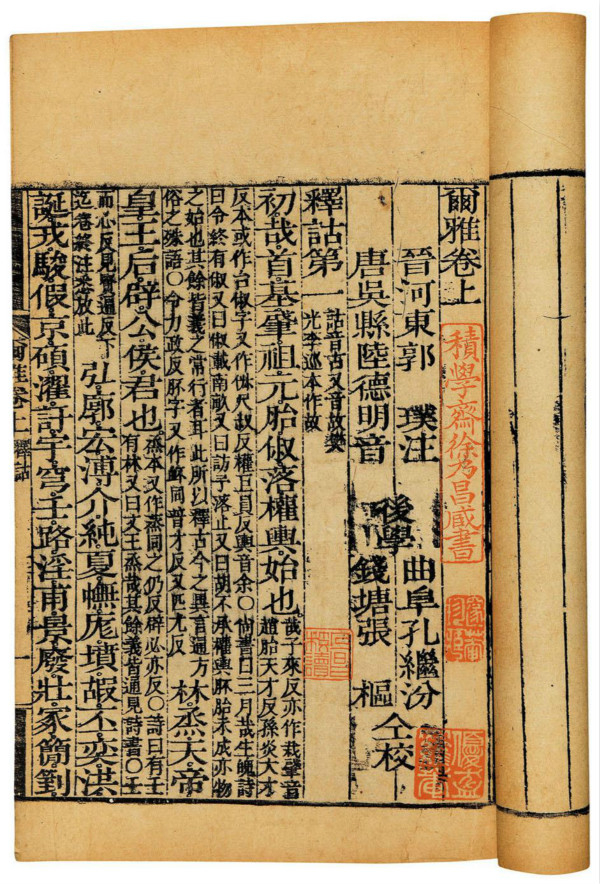 爾雅卷上
積學齋徐乃昌藏書
晉河東郭 璞注
唐吳縣陸德明音
後學
曲阜孔繼汾
錢塘張 樞
仝校
釋詁第一
詁音古又音故樊
光李巡本作故
初哉首基肇祖元胎俶落權輿始也
哉子來反亦作栽肇音
趙胎天才反孫炎大才
反本或作台俶字又作 尺叔反權巨員反輿音余○尚書曰三月哉生魄詩
曰令終有俶又曰俶載南畝又曰訪予落止又曰胡不承權輿胚胎未成亦物
之始也其餘皆義之常行者耳此所以釋古今之異言通方
俗之殊語○令力政反胚字又作 同普才反又匹尤反
林烝天帝
皇王后辟公侯君也
烝本又作蒸同之仍反辟必亦反○詩曰有壬
有林又曰文王烝哉其餘義皆通見詩書○壬
而心反見賢遍反下
迄卷終注悉放此
弘廓宏溥介純夏幠厖墳嘏丕奕洪
誕戎駿假京碩濯訏宇穹壬路淫甫景廢壯冢簡箌
爾雅卷上 釋詁 一